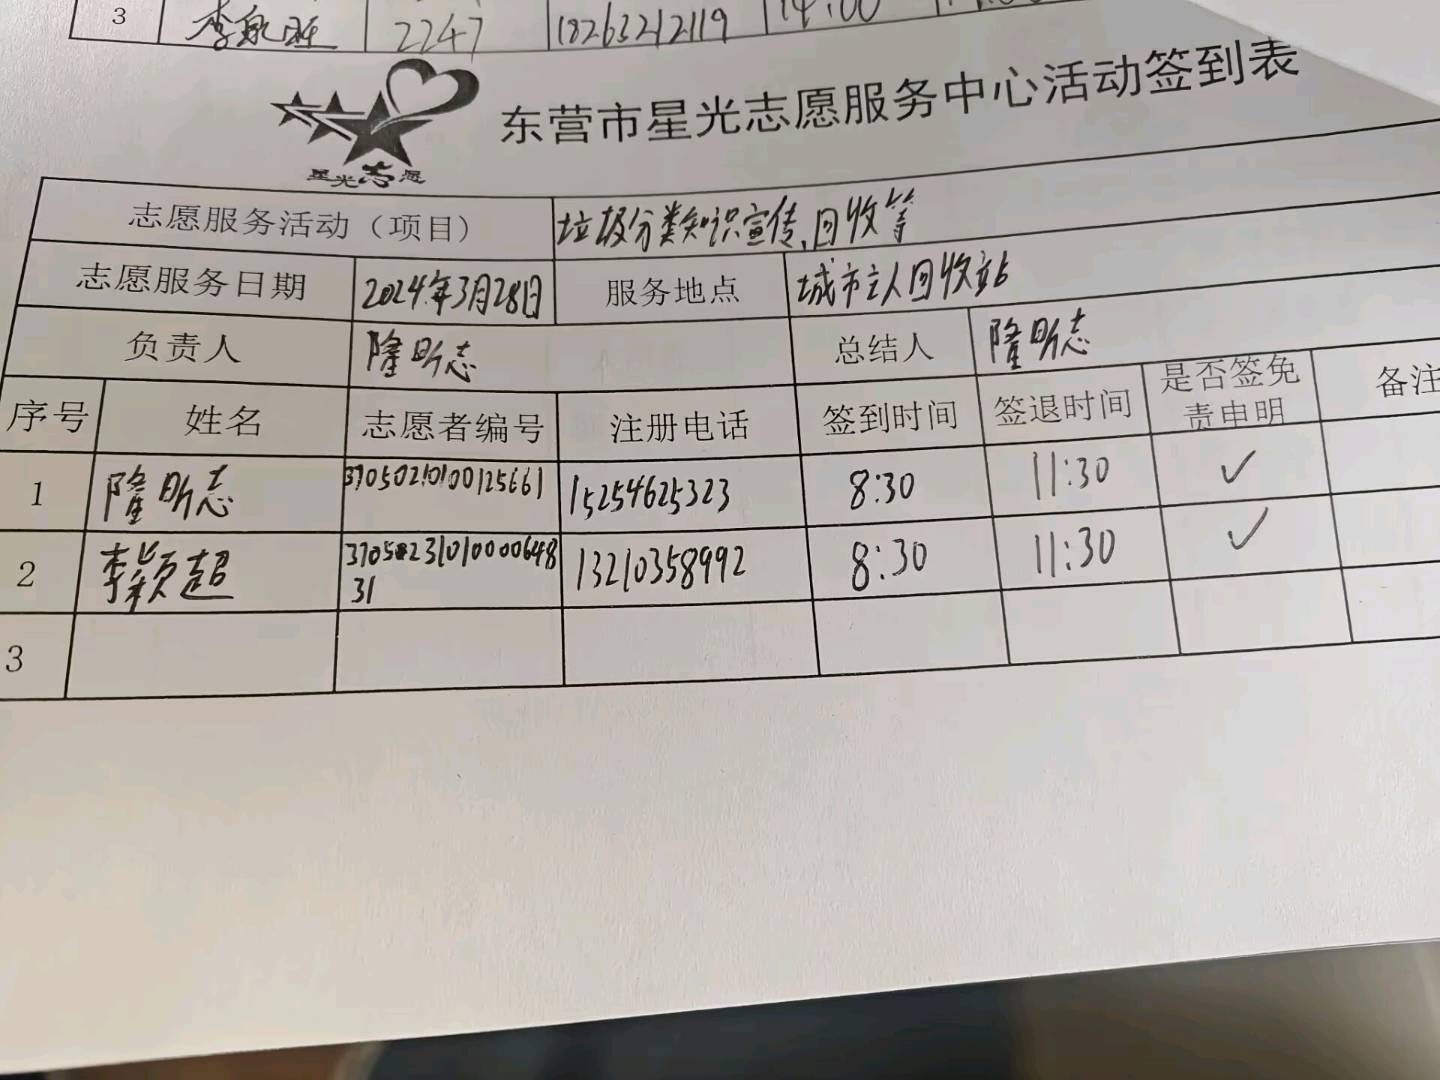 3 李 2247 18263212119 14:00
星光志愿
东营市星光志愿服务中心活动签到表
志愿服务活动（项目） 垃圾分类知识宣传、回收等
志愿服务日期 2024年3月28日 服务地点 城市主人回收站
负责人 隆昕志 总结人 隆昕志
序号 姓名 志愿者编号 注册电话 签到时间 签退时间 是否签免 备注
责申明
1 隆昕志 37050210100125661 15254625323 8:30 11:30 ✓
2 李颖超 13210358992 8:30 11:30 ✓
31
3